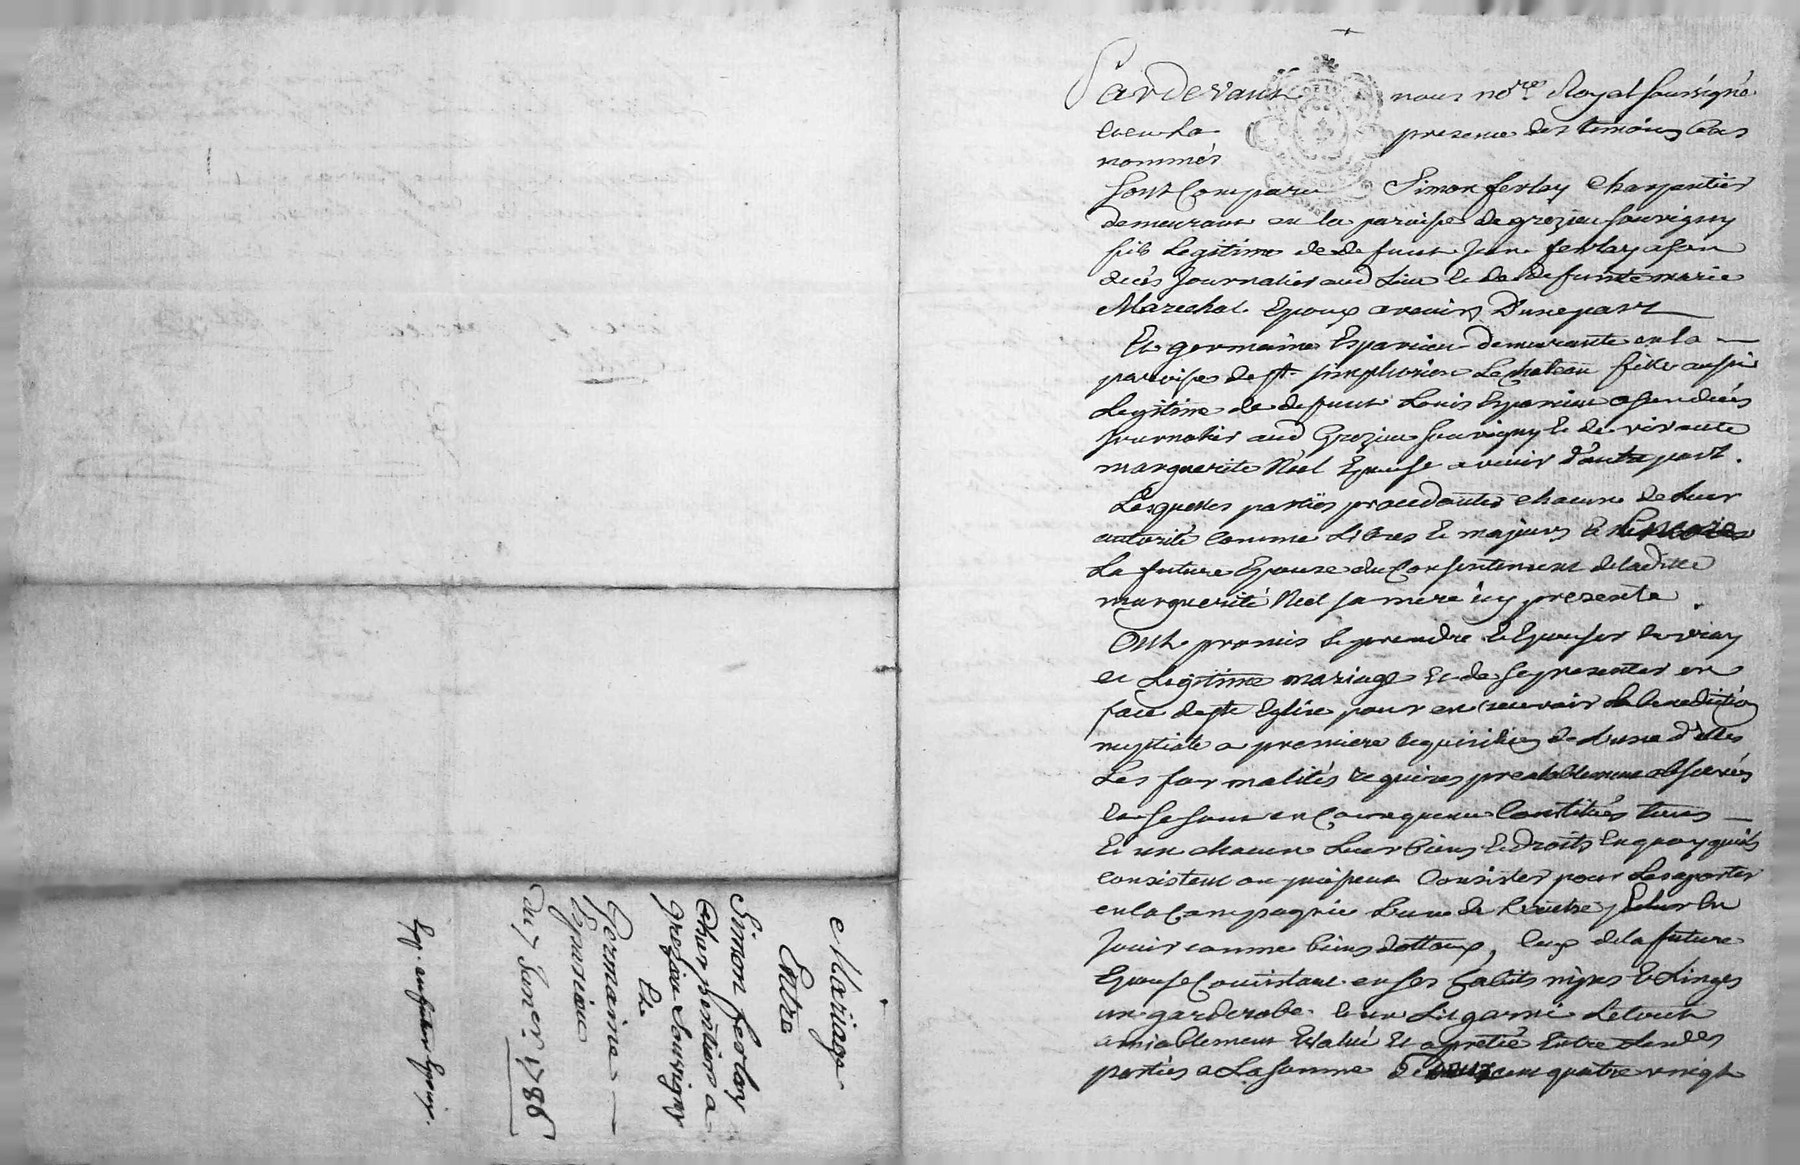 Mariage
Entre
Simon ferlay
Charpentier a
Grezieu Souvigny
Et
Germaine
Esparieu
du 7 Janer. 1786
Exp. au futur Epoux.
Pardevant nous nore. Royal soussigné
et en La presence des temoins bas
nommés
Sont Comparu Simon ferlay Charpentier
demeurant en la paroisse de grezieu souvigny
fils Legitime de defunt Jean ferlay a son
decès Journalier aud Lieu et de defunte marie
Marechal. Epoux avenir D'une part
Et germaine Esparieu demeurante en la
paroisse de st. simphorien Le chateau fille aussi
Legitime de defunt Louis Esparieu a son decès
Journalier aud Grezieu souvigny Et de vivante
marguerite Néel Epouse avenir d'autre part.
Lesquelles parties procedantes chacune de Leur
autorité Comme Libres Et majeurs Et
La future Epouse du Consentement de laditte
marguerite Néel sa mere icy presente.
Ont promis se prendre Et Epouser en vray
et Legitime mariage Et de se presenter en
face de ste Eglise pour en recevoir la benediction
nuptiale a premiere requisition de L'une d'elles
Les formalités requises prealablement observés
Et se sont en Consequence Constitués tous
Et un chacun Leur biens Et droits En quoy quils
consistent ou puissent Consister pour Les aporter
en la Compagnie L'un de L'autre
Jouir comme biens dottaux, Ceux de la future
Epouse Consistant en ses habits nipes Et Linges
un garderobe Et un Lit garni Le tout
amiablement Evalué Et apretié Entre Lesdes
parties a La somme De cent quatre vingt